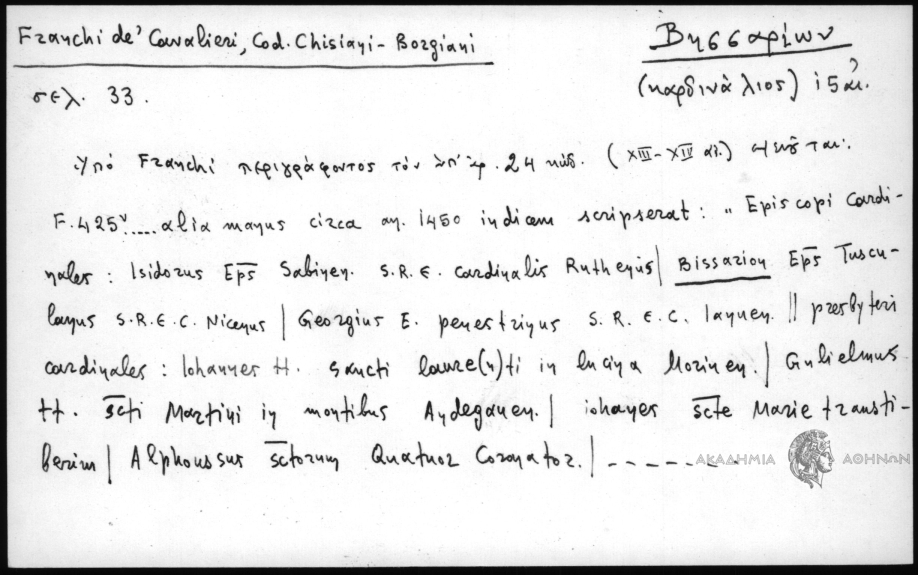 Franchi de' Cavalieri, Cod. Chisiani-Borgiani
Βησσαρίων
(καρδινάλιος) 15 αἰ.
σελ. 33.
Ὑπό Franchi περιγράφοντος τόν ὑπ' ἀρ. 24 κώδ. (XIII-XIV αἰ.)
F. 425v.... alia manus circa an. 1450 indicem scripserat: „ Episcopi Cardi-
nales: Isidorus Eps Sabinen. S.R.E. cardinalis Ruthenus | Bissarion Eps Tuscu-
lanus S.R.E.C. Nicenus | Georgius E. penestrinus S.R.E.C. Ianuen. || presbyteri
cardinales: Iohannes tt. Sancti laure(n)ti in lucina Morinen. | Gulielmus
tt. scti Martini in montibus Andeganen. | iohanes scte Marie transti-
berim | Alphoussus sctorum Quatuor Coronator. | -------
ΑΚΑΔΗΜΙΑ ΑΘΗΝΩΝ